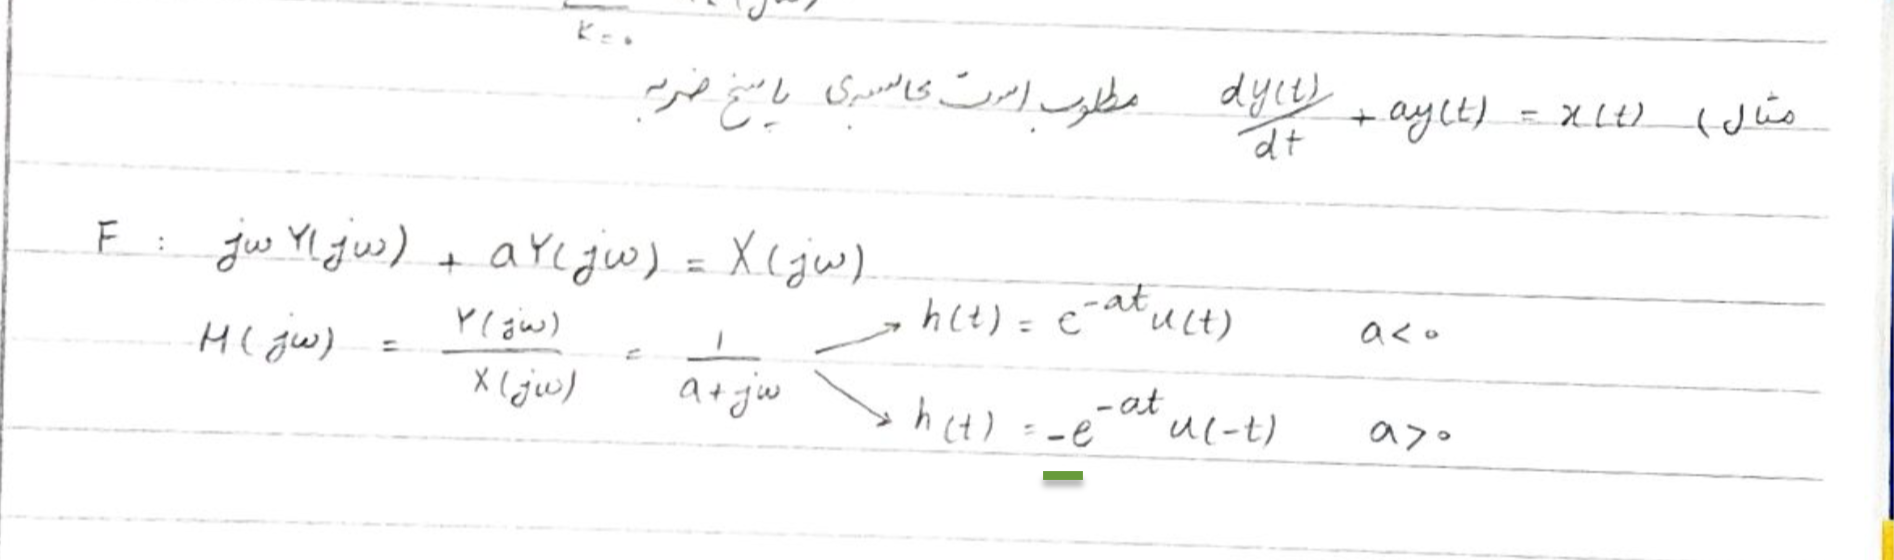 K=0
مثال) dy(t)/dt + ay(t) = x(t) مطلوب است محاسبه‌ی پاسخ ضربه
F : jω Y(jω) + aY(jω) = X(jω)
H(jω) = Y(jω)/X(jω) = 1/(a+jω) → h(t) = e^{-at} u(t) a<0
→ h(t) = -e^{-at} u(-t) a>0